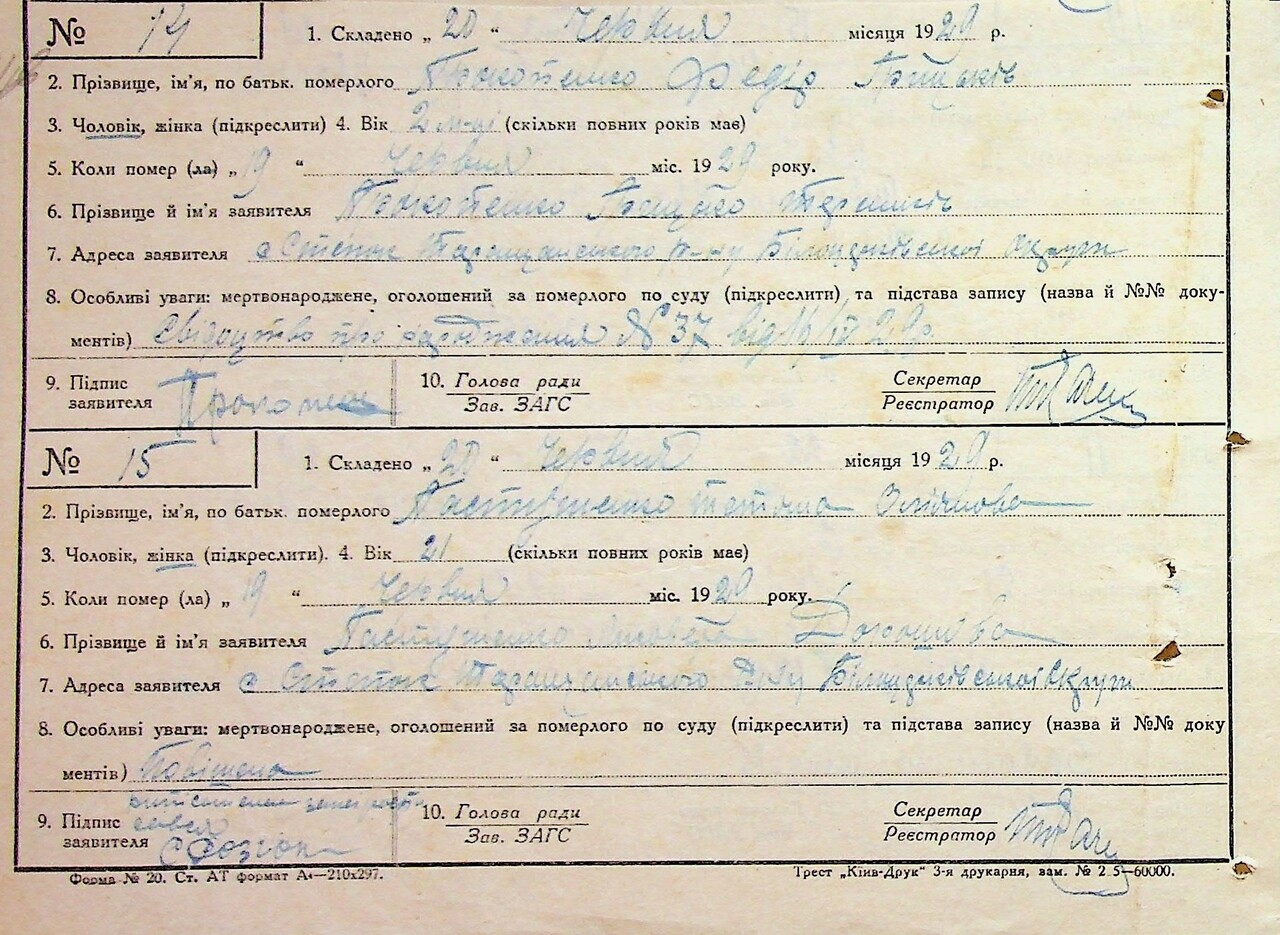 № 14 1. Складено „ 20 “ Червня місяця 1929 р.
2. Прізвище, ім'я, по батьк. померлого Прокопенко Федір Грицьків
3. Чоловік, жінка (підкреслити) 4. Вік 2 м-ці (скільки повних років має)
5. Коли помер (ла) „ 19 “ Червня міс. 1929 року.
6. Прізвище й ім'я заявителя Прокопенко Грицько
7. Адреса заявителя с Степок Таращанського р-ну Білоцерківської округи
8. Особливі уваги: мертвонароджене, оголошений за померлого по суду (підкреслити) та підстава запису (назва й №№ доку-
ментів) Свідоцтво про народження № 37 від 16/IV 29р.
9. Підпис 10. Голова ради Секретар
заявителя Зав. ЗАГС Реєстратор
№ 15 1. Складено „ 20 “ Червня місяця 1929 р.
2. Прізвище, ім'я, по батьк. померлого Пастушенко Тетяна
3. Чоловік, жінка (підкреслити). 4. Вік 21 (скільки повних років має)
5. Коли помер (ла) „ 19 “ Червня міс. 1929 року.
6. Прізвище й ім'я заявителя Пастушенко
7. Адреса заявителя с Степок Таращанського р-ну Білоцерківської округи
8. Особливі уваги: мертвонароджене, оголошений за померлого по суду (підкреслити) та підстава запису (назва й №№ доку
ментів)
9. Підпис 10. Голова ради Секретар
заявителя Зав. ЗАГС Реєстратор
Форма № 20. Ст. АТ формат А4—210x297. Трест „Київ-Друк“ 3-я друкарня, зам. № 2 5—60000.